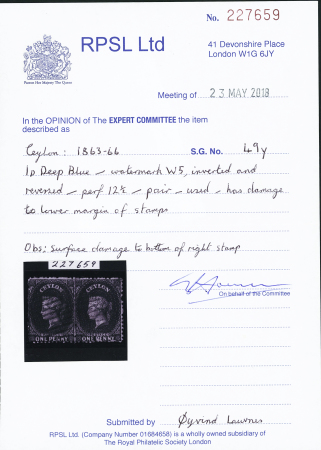 No. 227659
RPSL Ltd
41 Devonshire Place
London W1G 6JY
Patron Her Majesty The Queen
Meeting of 23 MAY 2018
In the OPINION of The EXPERT COMMITTEE the item
described as
Ceylon: 1863-66 S.G. No. 49y
1d Deep Blue - watermark W5, inverted and
reversed - perf 12½ - pair - used - has damage
to lower margin of stamps
Obs: Surface damage to bottom of right stamp
227659
CEYLON CEYLON
ONE PENNY ONE PENNY
On behalf of the Committee
Submitted by Øyvind
RPSL Ltd. (Company Number 01684658) is a wholly owned subsidiary of
The Royal Philatelic Society London